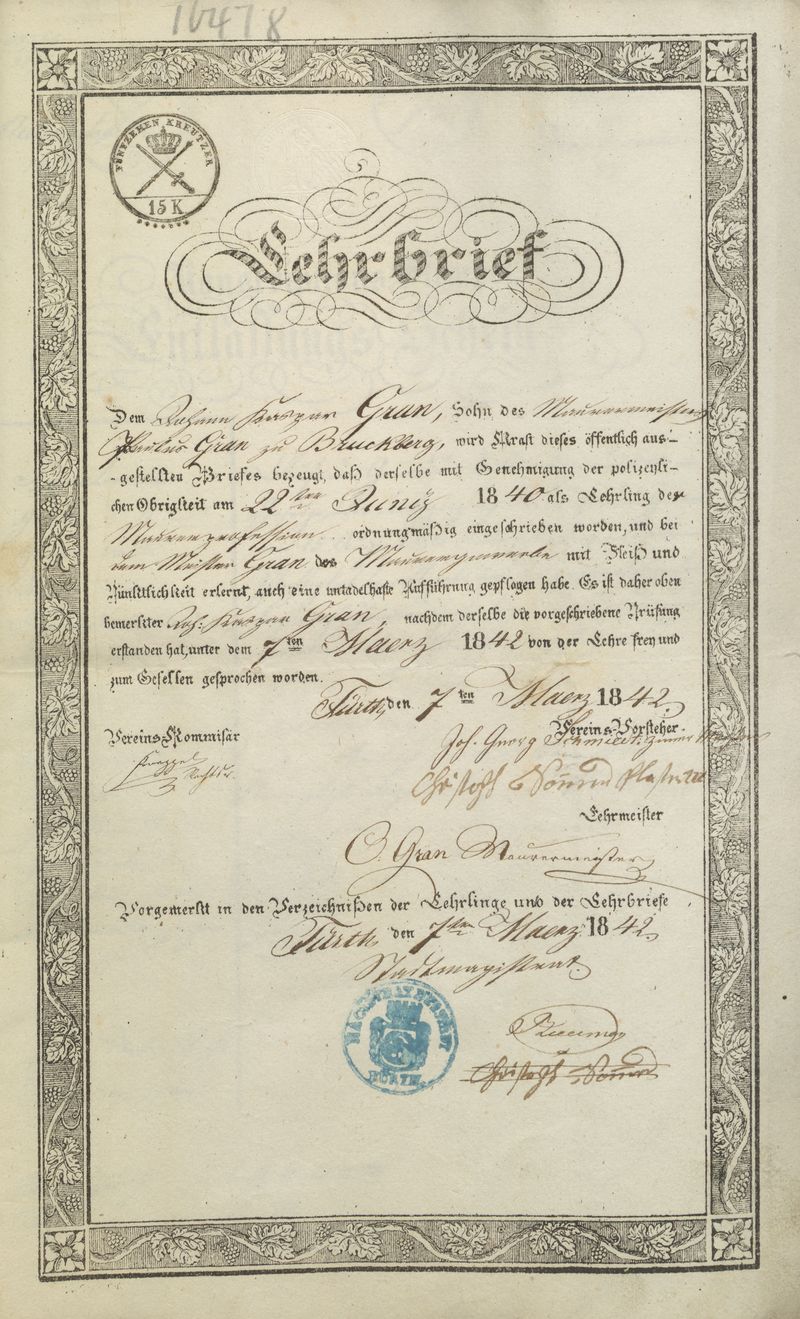 16478
FÜNFZEHEN KREUTZER
15 K
Lehrbrief
Dem Johann Kaspar Gran, Sohn des Maurermeisters
Gran zu Bruckberg, wird Kraft dieses öffentlich aus-
-gestellten Briefes bezeugt, daß derselbe mit Genehmigung der polizeyli-
chen Obrigkeit am 22ten Juniy 1840 als Lehrling der
Maurerprofession ordnungmäßig eingeschrieben worden, und bei
dem Meister Gran das Maurergewerbe mit Fleiß und
Pünktlichkeit erlernt, auch eine untadelhafte Aufführung gepflogen habe. Es ist daher oben
bemerkter Joh. Kaspar Gran, nachdem derselbe die vorgeschriebene Prüfung
erstanden hat, unter dem 7ten Maerz 1842 von der Lehre frey und
zum Gesellen gesprochen worden.
Fürth, den 7ten Maerz 1842.
Vereins-Kommisär
Vereins-Vorsteher
Joh. Georg Schmidt
Christoph
Lehrmeister
Gran Maurermeister
Vorgemerkt in den Verzeichnißen der Lehrlinge und der Lehrbriefe
Fürth, den 7ten Maerz 1842.
Stadtmagistrat.
MAGISTRAT DER STADT
FÜRTH
Christoph